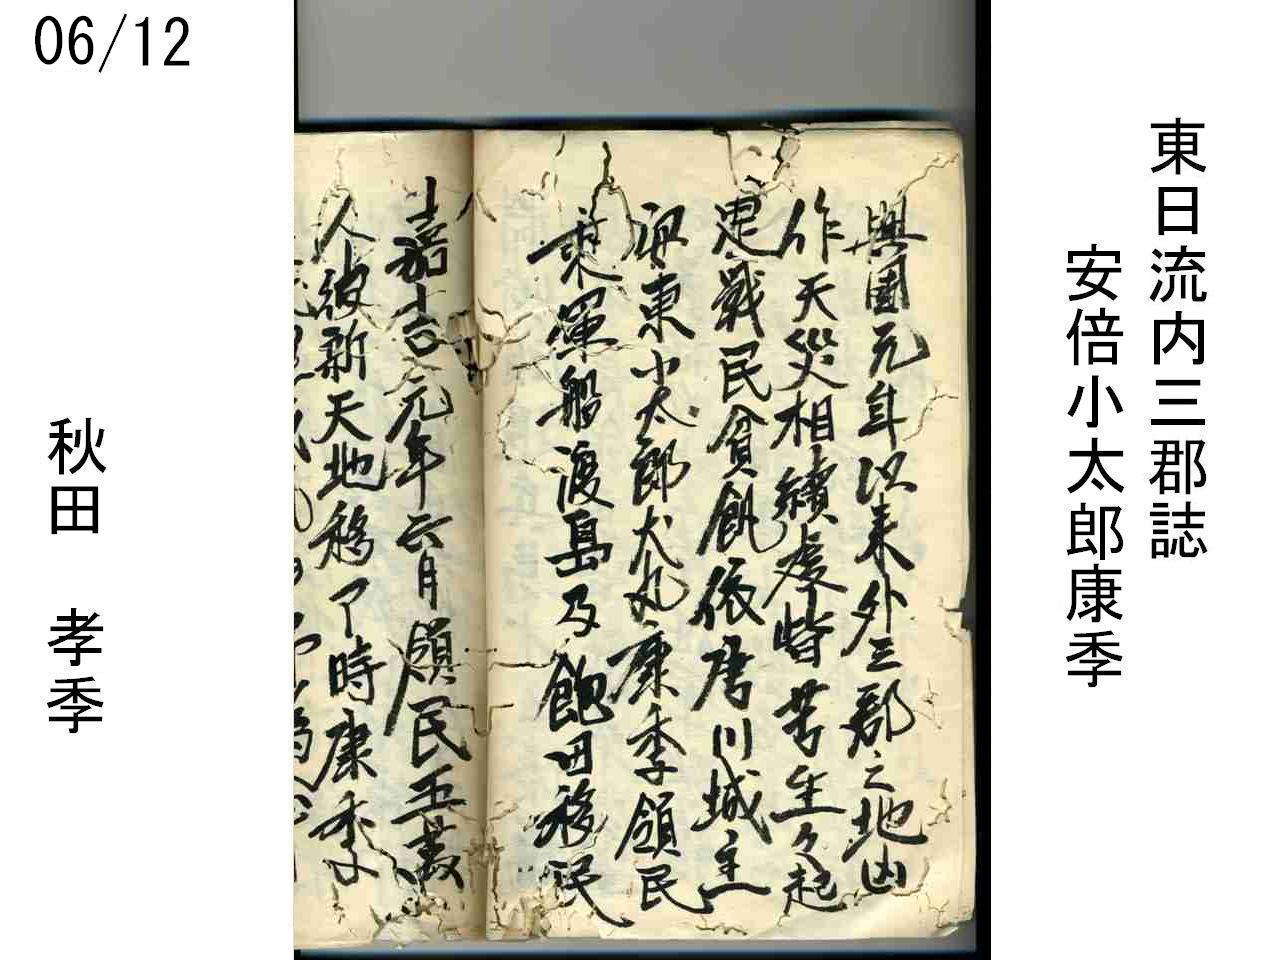 06/12
東日流内三郡誌
安倍小太郎康季
興國元年以来外三郡之地凶
作天災相續處皆苦生々起
戦民貧飢依唐川城主
安東小太郎犬丸康季領民
乗軍船渡島及飽田移民
嘉吉元年六月領民五義
人彼新天地移了時康季
秋田 孝季